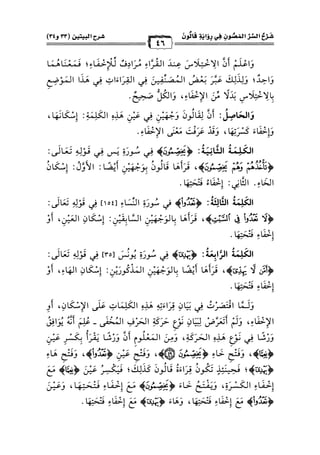 شرح البيتين (٣٣ و٣٤)
٤٦
شَرْعُ السِّرِّ المَصُونِ فِي رِوَايَةِ قَالُونَ
وَاعْلَمْ أَنَّ الِاخْتِلَاسَ عِنْدَ القُرَّاءِ مُرَادِفٌ لِلْإِخْفَاءِ؛ فَمَعْنَاهُمَا
وَاحِدٌ؛ وَلِذَلِكَ عَبَّرَ بَعْضُ المُصَنِّفِينَ فِي القِرَاءَاتِ فِي هَذَا المَوْضِعِ
بِالِاخْتِلَاسِ بَدَلًا مِّنَ الإِخْفَاءِ، وَالكُلُّ صَحِيحٌ.
وَالحَاصِلُ: أَنَّ لِقَالُونَ وَجْهَيْنِ فِي عَيْنِ هَذِهِ الكَلِمَةِ: إِسْكَانَهَا،
وَإِخْفَاءَ كَسْرَتِهَا، وَقَدْ عَرَفْتَ مَعْنَى الإِخْفَاءِ.
الكَلِمَةُ الثَّانِيَةُ: ﴿يَخِصِّمُونَ﴾ فِي سُورَةِ يَس فِي قَوْلِهِ تَعَالَى:
﴿تَأْخُذُهُمْ وَهُمْ يَخِصِّمُونَ﴾، قَرَأَهَا قَالُونُ بِوَجْهَيْنِ أَيْضًا: الأَوَّلُ: إِسْكَانُ
الخَاءِ. الثَّانِي: إِخْفَاءُ فَتْحَتِهَا.
الكَلِمَةُ الثَّالِثَةُ: ﴿تَعْدُوا﴾ فِي سُورَةِ النِّسَاءِ [١٥٤] فِي قَوْلِهِ تَعَالَى:
﴿لَا تَعْدُوا فِي السَّبْتِ﴾، قَرَأَهَا بِالوَجْهَيْنِ السَّابِقَيْنِ: إِسْكَانِ العَيْنِ، أَوْ
إِخْفَاءِ فَتْحَتِهَا.
الكَلِمَةُ الرَّابِعَةُ: ﴿يَهِدِّي﴾ فِي سُورَةِ يُونُسَ [٣٥] فِي قَوْلِهِ تَعَالَى:
﴿أَمَّن لَّا يَهِدِّي﴾، قَرَأَهَا أَيْضًا بِالوَجْهَيْنِ المَذْكُورَيْنِ: إِسْكَانِ الهَاءِ، أَوْ
إِخْفَاءِ فَتْحَتِهَا.
وَلَمَّا اقْتَصَرْتُ فِي بَيَانِ قِرَاءَتِهِ هَذِهِ الكَلِمَاتِ عَلَى الإِسْكَانِ، أَوِ
الإِخْفَاءِ، وَلَمْ أَتَعَرَّضْ لِبَيَانِ نَوْعِ حَرَكَةِ الحَرْفِ المُخْفَى - عُلِمَ أَنَّهُ يُوَافِقُ
وَرْشًا فِي نَوْعِ هَذِهِ الحَرَكَةِ، وَمِنَ المَعْلُومِ أَنَّ وَرْشًا يَقْرَأُ بِكَسْرِ عَيْنِ
﴿نِعِمَّا﴾، وَفَتْحِ خَاءِ ﴿يَخِصِّمُونَ﴾، وَفَتْحِ عَيْنِ ﴿تَعْدُوا﴾، وَفَتْحِ هَاءِ
﴿يَهِدِّي﴾؛ فَحِينَئِذٍ تَكُونُ قِرَاءَةُ قَالُونَ كَذَلِكَ؛ فَيَكْسِرُ عَيْنَ ﴿نِعِمَّا﴾ مَعَ
إِخْفَاءِ الكَسْرَةِ، وَيَفْتَحُ خَاءَ ﴿يَخِصِّمُونَ﴾ مَعَ إِخْفَاءِ فَتْحَتِهَا، وَعَيْنَ
﴿تَعْدُوا﴾ مَعَ إِخْفَاءِ فَتْحَتِهَا، وَهَاءَ ﴿يَهِدِّي﴾ مَعَ إِخْفَاءِ فَتْحَتِهَا.